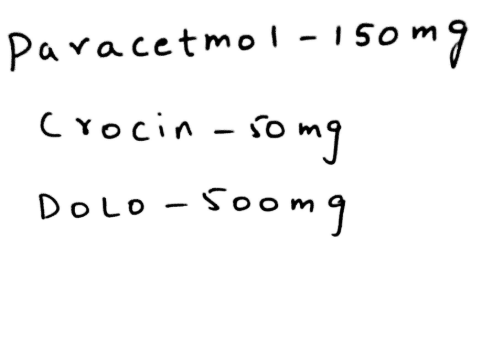 Paracetmol - 150mg
Crocin - 50mg
DOLO - 500mg